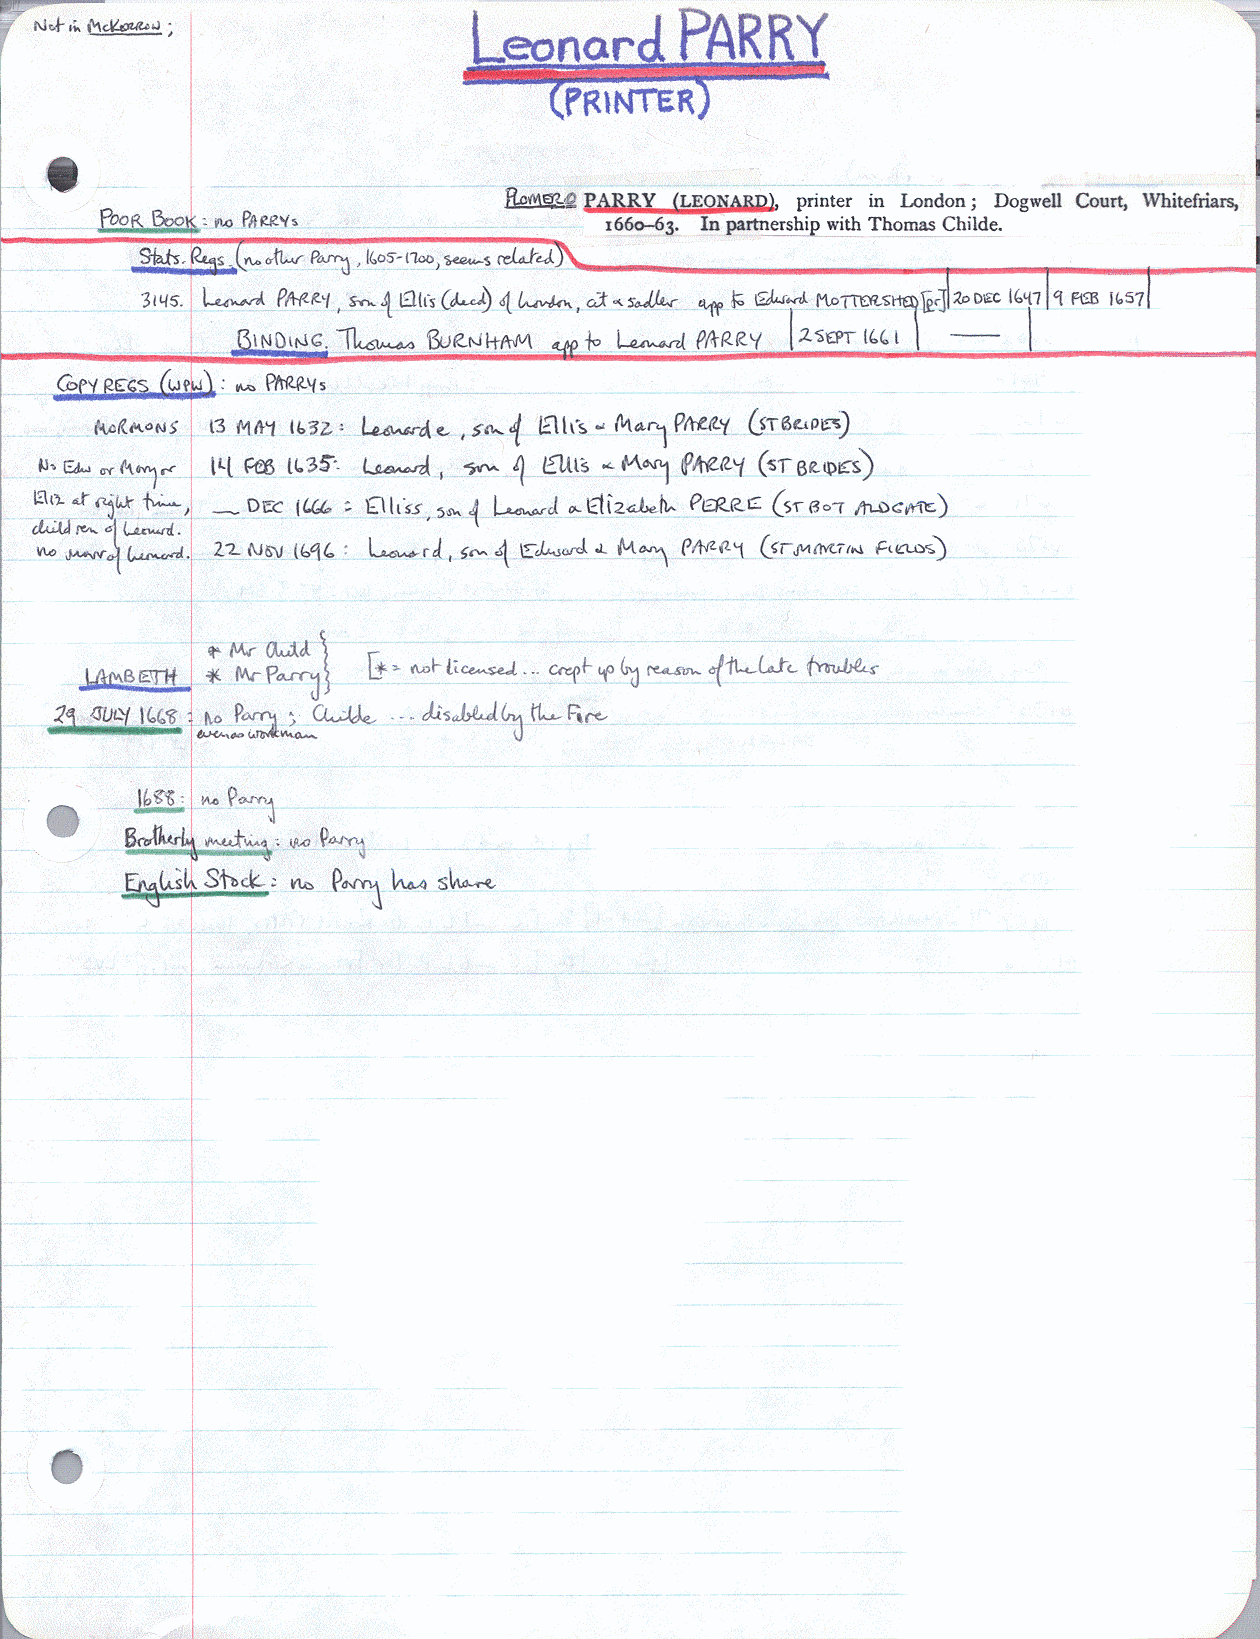 Not in McKerrow;
Leonard PARRY
(PRINTER)
PLOMER PARRY (LEONARD), printer in London; Dogwell Court, Whitefriars,
1660–63. In partnership with Thomas Childe.
POOR BOOK: no PARRYs
Stats. Regs. (no other Parry, 1605-1700, seems related)
3145. Leonard PARRY, son of Ellis (decd) of London, cit & sadler app to Edward MOTTERSHED [pr] | 20 DEC 1647 | 9 FEB 1657 |
BINDING. Thomas BURNHAM app to Leonard PARRY | 2 SEPT 1661 | —— |
COPY REGS (WPW): no PARRYs
MORMONS 13 MAY 1632: Leonarde, son of Ellis & Mary PARRY (ST BRIDES)
No Edw or Mary or 14 FEB 1635: Leonard, son of Ellis & Mary PARRY (ST BRIDES)
Eliz at right time, — DEC 1666: Elliss, son of Leonard & Elizabeth PERRE (ST BOT ALDGATE)
children of Leonard.
no marr of Leonard. 22 NOV 1696: Leonard, son of Edward & Mary PARRY (ST MARTIN FIELDS)
* Mr Child }
LAMBETH * Mr Parry } [* = not licensed... crept up by reason of the late troubles
29 JULY 1668: no Parry; Childe ... disabled by the Fire
even as workman
1688: no Parry
Brotherly meeting: no Parry
English Stock: no Parry has share